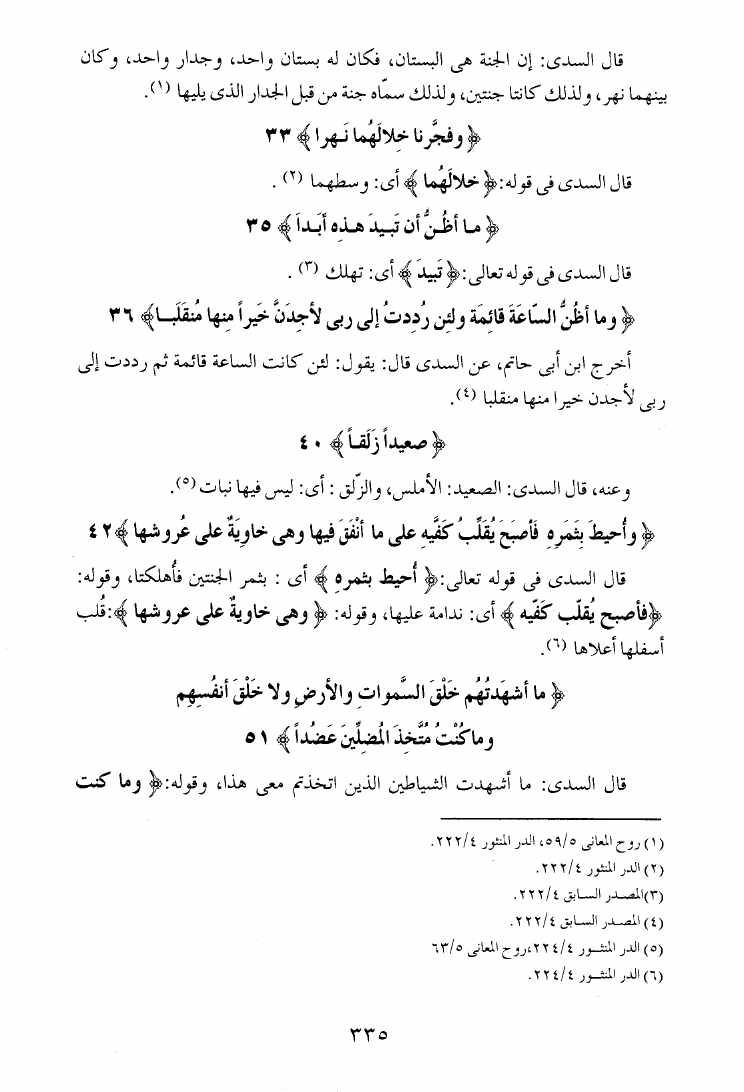 قال السدى: إن الجنة هى البستان، فكان له بستان واحد، وجدار واحد، وكان
بينهما نهر، ولذلك كانتا جنتين، ولذلك سمّاه جنة من قبل الجدار الذى يليها (١).
﴿ وفجَّرنا خلالَهُما نَهرا ﴾ ٣٣
قال السدى فى قوله:﴿ خلالَهُما ﴾ أى: وسطهما (٢) .
﴿ ما أظُنُّ أن تَبيدَ هذه أبَداَ ﴾ ٣٥
قال السدى فى قوله تعالى:﴿ تَبيدَ ﴾ أى: تهلك (٣) .
﴿ وما أظُنُّ السّاعَةَ قائِمَة ولئِن رُدِدتُ إلى ربى لأجِدَنَّ خَيراً مِنها مُنقَلَبا﴾ ٣٦
أخرج ابن أبى حاتم، عن السدى قال: يقول: لئن كانت الساعة قائمة ثم رددت إلى
ربى لأجدن خيرا منها منقلبا (٤).
﴿ صعيداً زَلَقاً ﴾ ٤٠
وعنه، قال السدى: الصعيد: الأملس، والزّلق : أى: ليس فيها نبات (٥).
﴿ وأُحيطَ بِثَمَرِه فَأصبَحَ يُقَلِّبُ كَفَّيهِ على ما أنْفَقَ فيها وهى خاوِيَةٌ على عُروشها ﴾٤٢
قال السدى فى قوله تعالى:﴿ أُحيط بثمرهِ ﴾ أى : بثمر الجنتين فأُهلكتا، وقوله:
﴿فأصبح يُقلّب كفّيه ﴾ أى: ندامة عليها، وقوله: ﴿ وهى خاويةٌ على عروشها ﴾:قُلب
أسفلها أعلاها (٦).
﴿ ما أشهَدتُهُم خَلْقَ السَّموات والأرضِ ولا خَلْقَ أنفُسِهِم
وماكُنْتُ مُتَّخِذَ المُضِلِّينَ عَضُداً ﴾ ٥١
قال السدى: ما أشهدت الشياطين الذين اتخذتم معى هذا، وقوله:﴿ وما كنت
(١) روح المعانى ٥٩/٥، الدر المنثور ٢٢٢/٤.
(٢) الدر المنثور ٢٢٢/٤.
(٣)المصدر السابق ٢٢٢/٤.
(٤) المصدر السابق ٢٢٢/٤.
(٥) الدر المنثور ٢٢٤/٤،روح المعانى ٦٣/٥
(٦) الدر المنثور ٢٢٤/٤.
٣٣٥